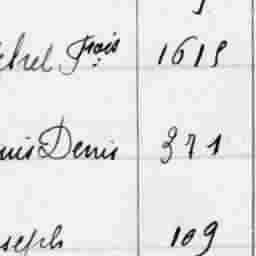 chel Frois 1619
uis Denis 371
oseph 109